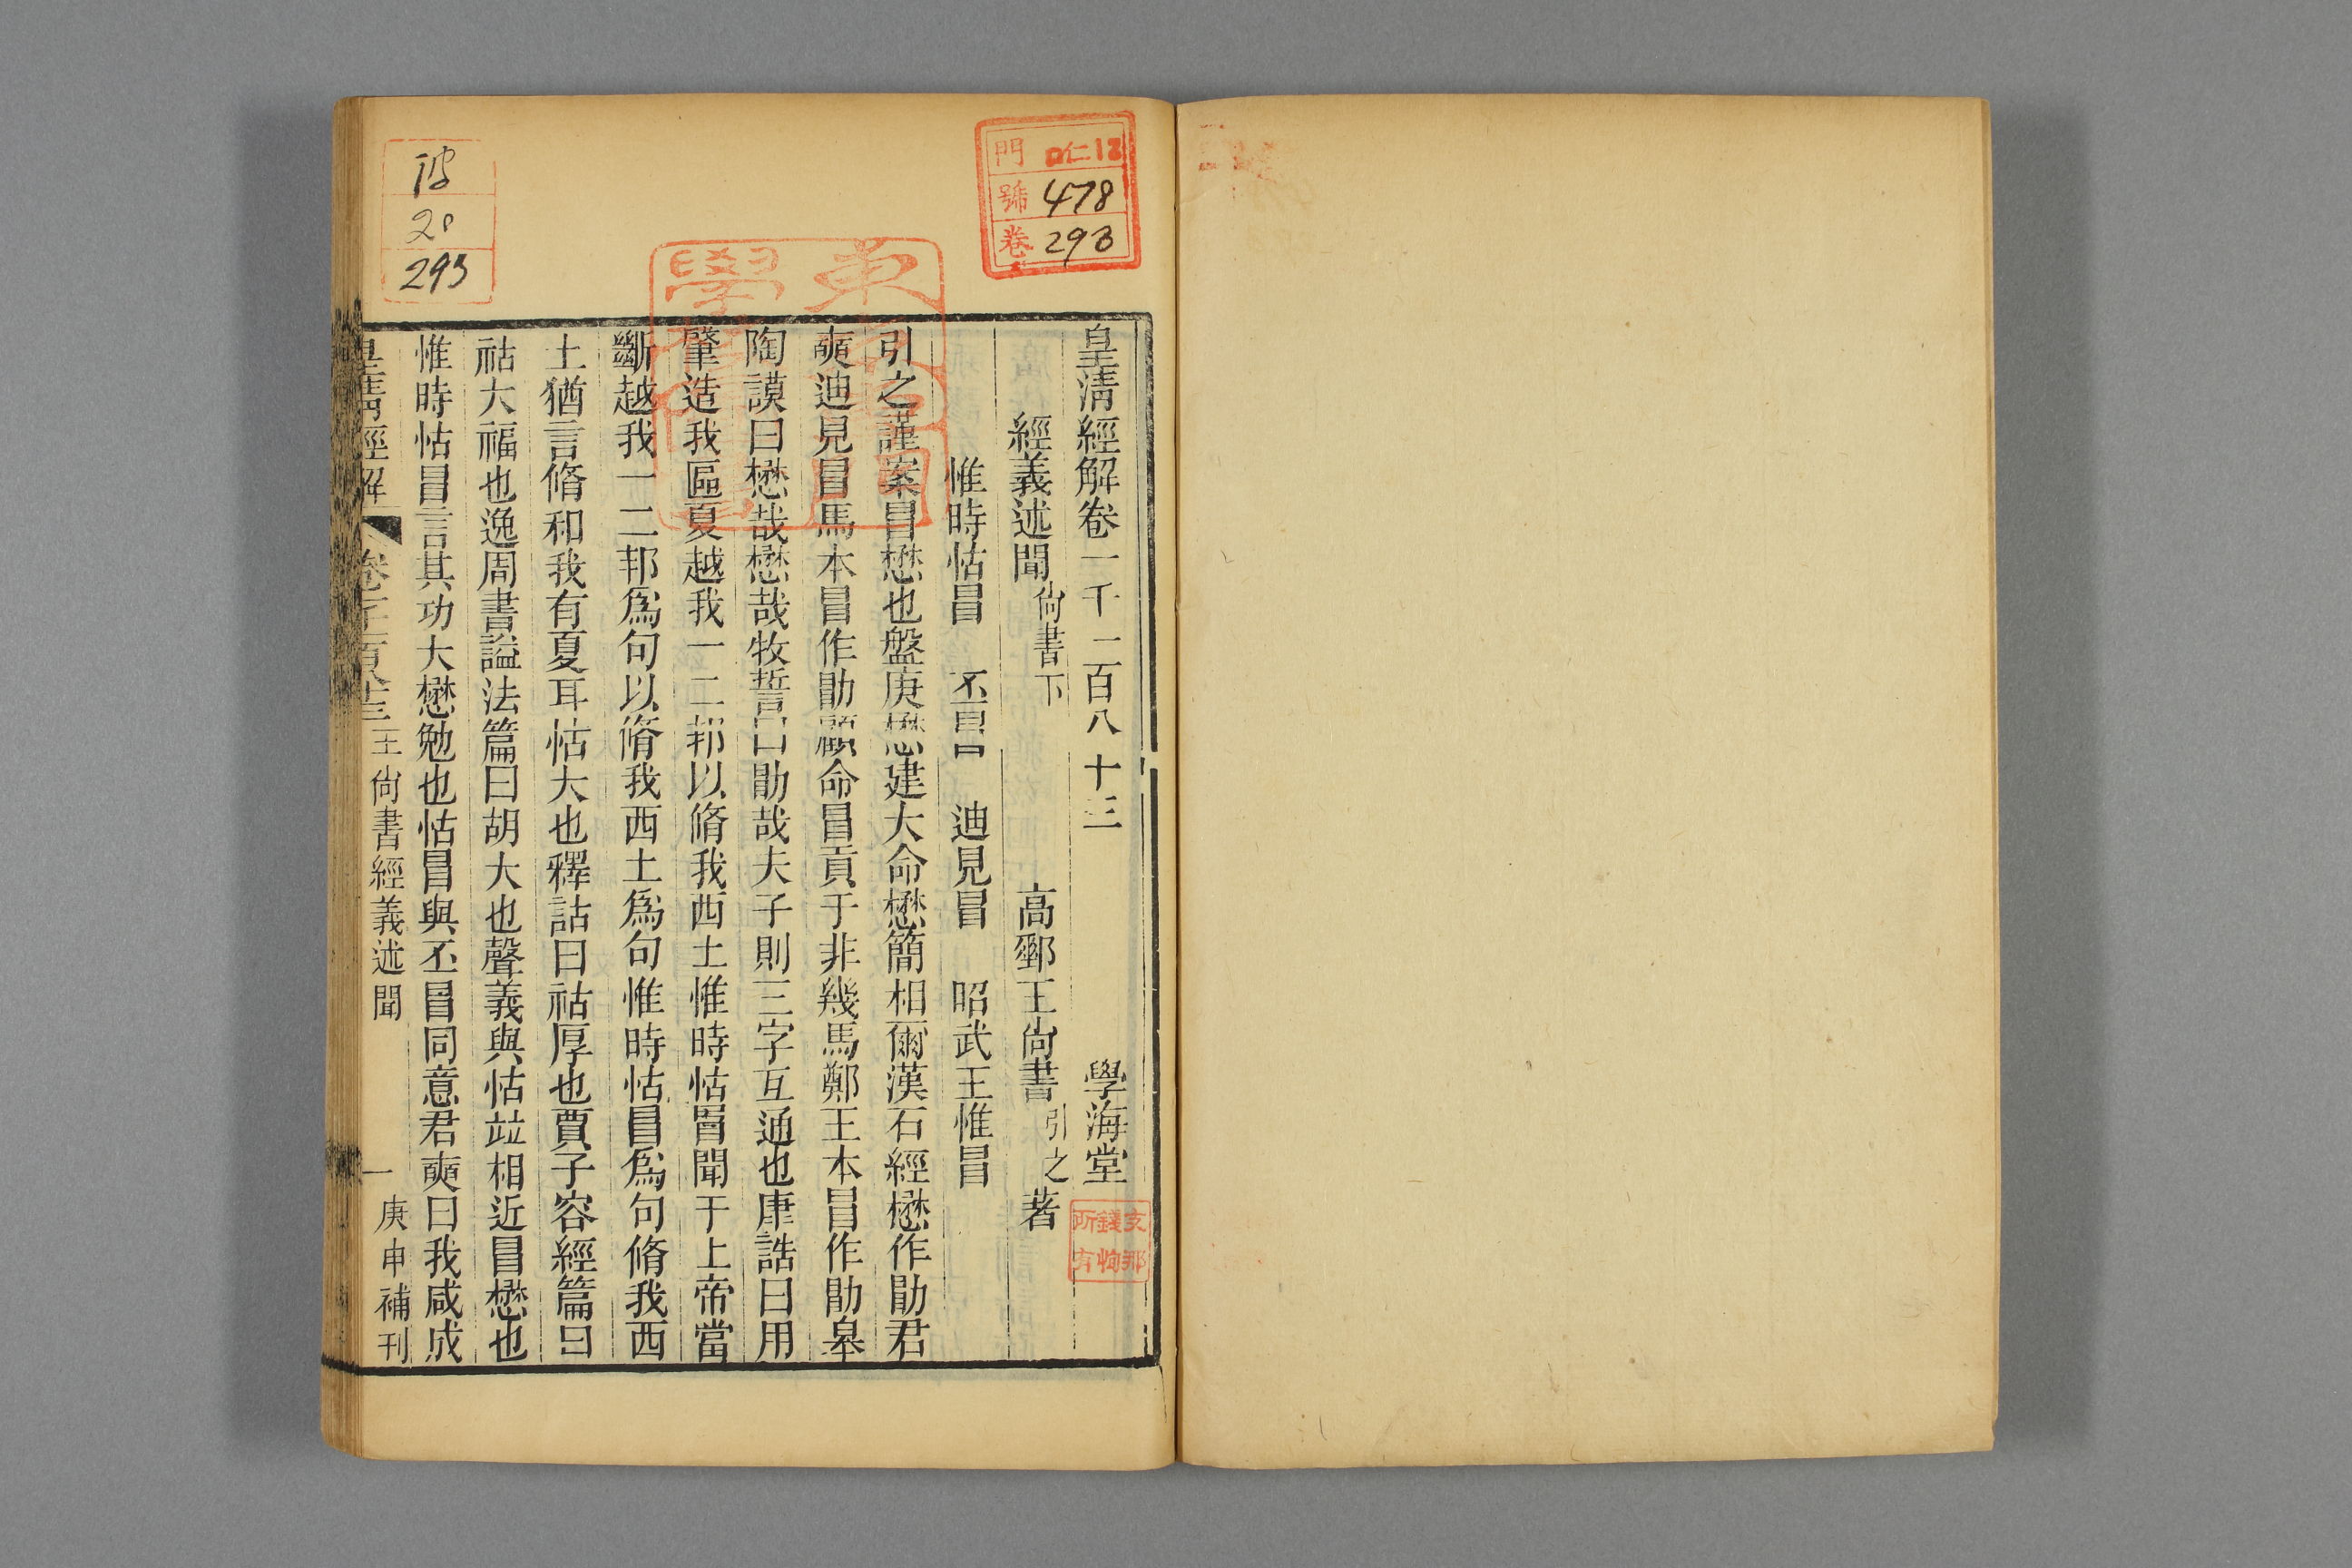 皇清經解卷一千一百八十三 學海堂
經義述聞 尙書下 高郵王尙書 引之 著
惟時怙冒 丕冒 迪見冒 昭武王惟冒
引之謹案冒懋也盤庚懋建大命懋簡相爾漢石經懋作勖君
奭迪見冒馬本冒作勖顧命冒貢于非幾馬鄭王本冒作勖皋
陶謨曰懋哉懋哉牧誓曰勖哉夫子則三字互通也康誥曰用
肇造我區夏越我一二邦以脩我西土惟時怙冒聞于上帝當
斷越我一二邦爲句以脩我西土爲句惟時怙冒爲句脩我西
土猶言脩和我有夏耳怙大也釋詁曰祜厚也賈子容經篇曰
祜大福也逸周書謚法篇曰胡大也聲義與怙竝相近冒懋也
惟時怙冒言其功大懋勉也怙冒與丕冒同意君奭曰我咸成
皇清經解 卷千一百八十三 王尙書經義述聞 一 庚申補刊
門 ロ仁12
號 478
卷 293
支那
錢恂
所有
20
293